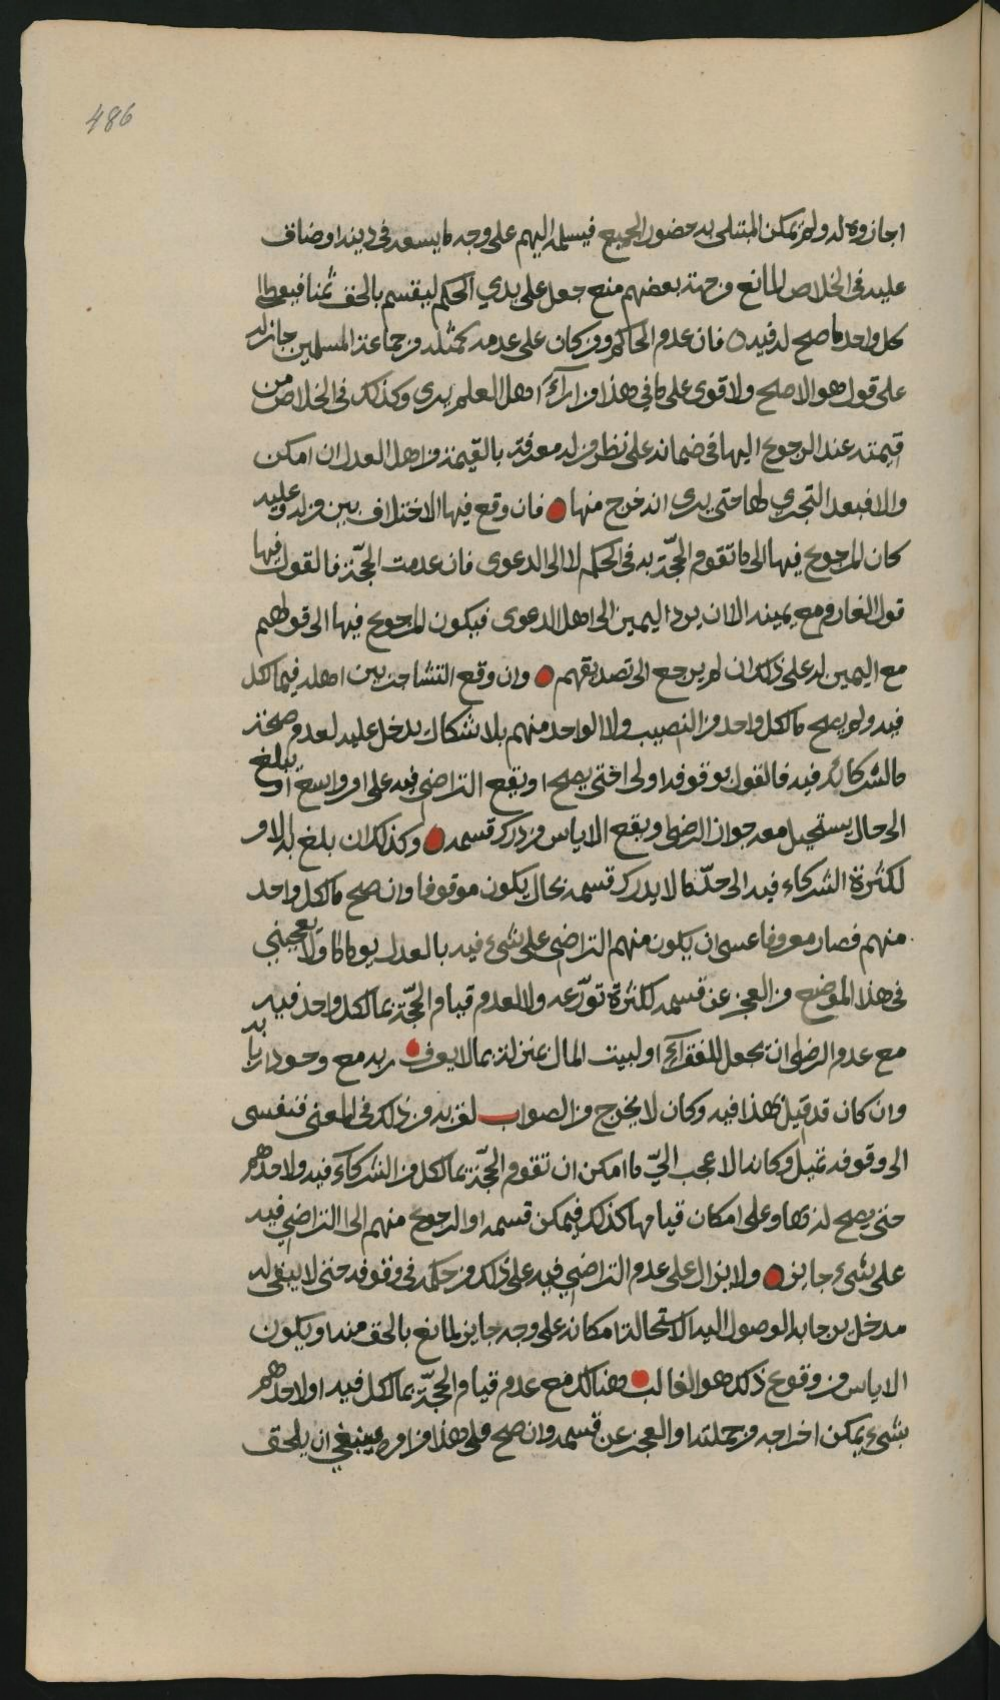 486
اجازوه له ولم يمكن المبتلى به حضور الجميع فيسلمه اليهم على وجه ما يسعه في دينه او ضاق
عليه في الخلاص لمانع من جهة بعضهم منع جعل على يدي الحكم ليقسم بالحق ثمنا فيعطا
كل واحد ما صح له فيه فان عدم الحاكم ومن كان على عدمه كمثله من جماعة المسلمين جاز له
على قول هو الاصلح ولا قوى على ما في هذا من آرآء اهل العلم يدري وكذلك في الخلاص من
قيمته عند الرجوع اليها في ضمانه على نظر من له معرفة بالقيمة من اهل العدل ان امكن
والا فبعد التحري لها حتى يدري انه خرج منها فان وقع فيها الاختلاف بين من له وعليه
كان المرجوع فيها الى ما تقوم الحجّة به في الحكم لا الى الدعوى فان عدمت الحجّة فالقول فيها
قول الغارم مع يمينه الا ان يرد اليمين الى اهل الدعوى فيكون المرجوع فيها الى قولهم
مع اليمين له على ذلك ان لم يرجع الى تصديقهم وان وقع التشاحن بين اهله فيما لكل
فيه ولم يصح ما لكل واحد من النصيب ولا لواحد منهم بلا شكاك يدخل عليه لعدم صحة
ما لشركائه فيه فالقول بوقوفه اولى حتى يصح او يقع التراضي فيه على امر واسع او يبلغ
الى حال يستحيل معه جواز الرضى ويقع الاياس من درك قسمه وكذلك ان بلغ به الامر
لكثرة الشركاء فيه الى حدّ ما لا يدرك قسمه بحال يكون موقوفا وان صح ما لكل واحد
منهم فصار معروفا عسى ان يكون منهم التراضي على شيء فيه بالعدل يوما ما ولا يعجبني
في هذا الموضع من العجز عن قسمه لكثرة توزّعه ولا لعدم قيام الحجّة بما لكل واحد فيه
مع عدم الرضى ان يجعل للفقرآء او لبيت المال بمنزلة ما لا يعرف ربه مع وجود اربابه
وان كان قد قيل بهذا فيه وكان لا يخرج من الصواب لقربه من ذلك في المعنى فنفسي
الى وقوفه تميل وكانه الاعجب اليّ ما امكن ان تقوم الحجّة بما لكل من الشركآء فيه ولاحدهم
حتى يصح له بها وعلى امكان قيامها كذلك فيمكن قسمه او الرجوع منهم الى التراضي فيه
على شيء جايز ولا يزال على عدم التراضي فيه على ذلك من حكمه في وقوفه حتى لا يبقى له
مدخل يرجا به الوصول اليه لاستحالة امكانه على وجه جايز لمانع بالحق منه او يكون
الاياس من وقوع ذلك هو الغالب هنالك مع عدم قيام الحجّة بما لكل فيه او لاحدهم
بشيء يمكن اخراجه من جملته او العجز عن قسمه وان صح فلي هذا من امره ينبغي ان يلحق